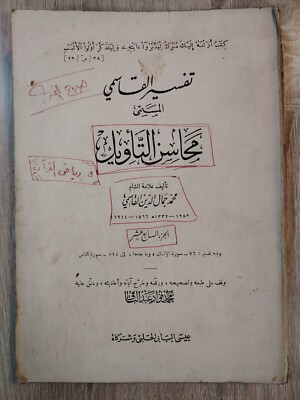 كتب أنزلنه إليك مبرك ليدبروا ءايته وليتذكر أولوا الألبب
[٣٨ / ص / ٢٩]
تفسير القاسمي
المسمى
محاسن التأويل
في رياض القرآن
تأليف علامة الشام
محمد جمال الدين القاسمي
١٢٨٣ - ١٣٣٢ هـ ١٨٦٦ - ١٩١٤ م
الجزء السابع عشر
وفيه تفسير : ٧٦ - سورة الإنسان وما بعدها ، إلى ١١٤ - سورة الناس
وقف على طبعه وتصحيحه ، ورقمه وخرج آياته وأحاديثه ، وعلق عليه
محمد فؤاد عبد الباقي
عيسى البابي الحلبي وشركاه